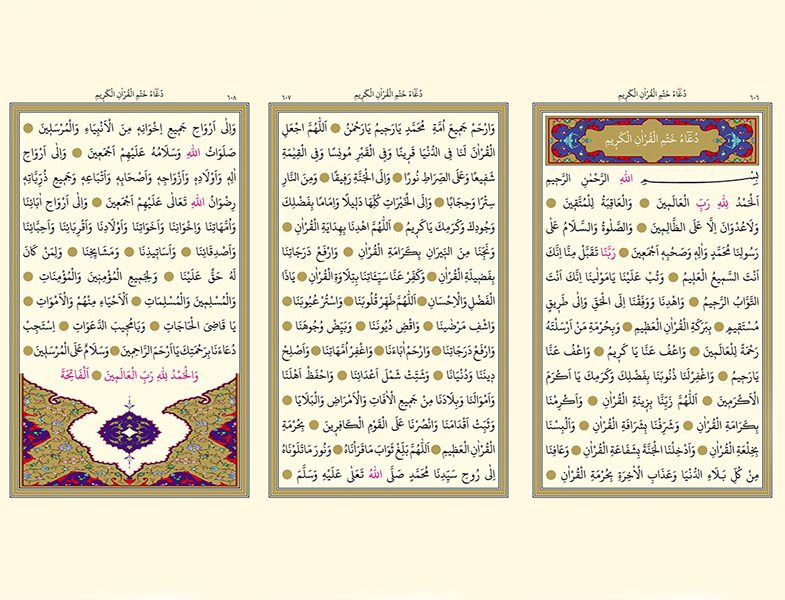 ٦٠٦
دُعَٓاءُ خَتْمِ الْقُرْاٰنِ الْكَر۪يمِ
دُعَٓاءُ خَتْمِ الْقُرْاٰنِ الْكَر۪يمِ
بِسْمِ اللهِ الرَّحْمٰنِ الرَّحِيمِ
اَلْحَمْدُ لِلّٰهِ رَبِّ الْعَالَمِينَ ۝ وَالْعَاقِبَةُ لِلْمُتَّقِينَ ۝
وَلَاعُدْوَانَ اِلَّا عَلَى الظَّالِمِينَ ۝ وَالصَّلٰوةُ وَالسَّلَامُ عَلٰى
رَسُولِنَا مُحَمَّدٍ وَاٰلِهِ وَصَحْبِهِ اَجْمَعِينَ ۝ رَبَّنَا تَقَبَّلْ مِنَّا اِنَّكَ
اَنْتَ السَّمِيعُ الْعَلِيمُ ۝ وَتُبْ عَلَيْنَا يَامَوْلٰينَا اِنَّكَ اَنْتَ
التَّوَّابُ الرَّحِيمُ ۝ وَاهْدِنَا وَوَفِّقْنَا اِلَى الْحَقِّ وَاِلٰى طَرِيقٍ
مُسْتَقِيمٍ ۝ بِبَرَكَةِ الْقُرْاٰنِ الْعَظِيمِ ۝ وَبِحُرْمَةِ مَنْ اَرْسَلْتَهُ
رَحْمَةً لِلْعَالَمِينَ ۝ وَاعْفُ عَنَّا يَا كَرِيمُ ۝ وَاعْفُ عَنَّا
يَارَحِيمُ ۝ وَاغْفِرْلَنَا ذُنُوبَنَا بِفَضْلِكَ وَكَرَمِكَ يَا اَكْرَمَ
الْاَكْرَمِينَ ۝ اَللّٰهُمَّ زَيِّنَّا بِزِينَةِ الْقُرْاٰنِ ۝ وَاَكْرِمْنَا
بِكَرَامَةِ الْقُرْاٰنِ ۝ وَشَرِّفْنَا بِشَرَافَةِ الْقُرْاٰنِ ۝ وَاَلْبِسْنَا
بِخِلْعَةِ الْقُرْاٰنِ ۝ وَاَدْخِلْنَا الْجَنَّةَ بِشَفَاعَةِ الْقُرْاٰنِ ۝ وَعَافِنَا
مِنْ كُلِّ بَلَاءِ الدُّنْيَا وَعَذَابِ الْاٰخِرَةِ بِحُرْمَةِ الْقُرْاٰنِ ۝
دُعَٓاءُ خَتْمِ الْقُرْاٰنِ الْكَر۪يمِ
٦٠٧
وَارْحَمْ جَمِيعَ اُمَّةِ مُحَمَّدٍ يَارَحِيمُ يَارَحْمٰنُ ۝ اَللّٰهُمَّ اجْعَلِ
الْقُرْاٰنَ لَنَا فِى الدُّنْيَا قَرِينًا وَفِى الْقَبْرِ مُونِسًا وَفِى الْقِيٰمَةِ
شَفِيعًا وَعَلَى الصِّرَاطِ نُورًا ۝ وَاِلَى الْجَنَّةِ رَفِيقًا ۝ وَمِنَ النَّارِ
سِتْرًا وَحِجَابًا ۝ وَاِلَى الْخَيْرَاتِ كُلِّهَا دَلِيلًا وَاِمَامًا بِفَضْلِكَ
وَجُودِكَ وَكَرَمِكَ يَاكَرِيمُ ۝ اَللّٰهُمَّ اهْدِنَا بِهِدَايَةِ الْقُرْاٰنِ ۝
وَنَجِّنَا مِنَ النِّيرَانِ بِكَرَامَةِ الْقُرْاٰنِ ۝ وَارْفَعْ دَرَجَاتِنَا
بِفَضِيلَةِ الْقُرْاٰنِ ۝ وَكَفِّرْ عَنَّا سَيِّئَاتِنَا بِتِلَاوَةِ الْقُرْاٰنِ ۝ يَاذَا
الْفَضْلِ وَالْاِحْسَانِ ۝ اَللّٰهُمَّ طَهِّرْ قُلُوبَنَا ۝ وَاسْتُرْ عُيُوبَنَا ۝
وَاشْفِ مَرْضٰينَا ۝ وَاقْضِ دُيُونَنَا ۝ وَبَيِّضْ وُجُوهَنَا ۝
وَارْفَعْ دَرَجَاتِنَا ۝ وَارْحَمْ اٰبَاءَنَا ۝ وَاغْفِرْ اُمَّهَاتِنَا ۝ وَاَصْلِحْ
دِينَنَا وَدُنْيَانَا ۝ وَشَتِّتْ شَمْلَ اَعْدَائِنَا ۝ وَاحْفَظْ اَهْلَنَا
وَاَمْوَالَنَا وَبِلَادَنَا مِنْ جَمِيعِ الْاٰفَاتِ وَالْاَمْرَاضِ وَالْبَلَايَا ۝
وَثَبِّتْ اَقْدَامَنَا وَانْصُرْنَا عَلَى الْقَوْمِ الْكَافِرِينَ ۝ بِحُرْمَةِ
الْقُرْاٰنِ الْعَظِيمِ ۝ اَللّٰهُمَّ بَلِّغْ ثَوَابَ مَاقَرَأْنَاهُ ۝ وَنُورَ مَاتَلَوْنَاهُ
اِلٰى رُوحِ سَيِّدِنَا مُحَمَّدٍ صَلَّى اللهُ تَعَالٰى عَلَيْهِ وَسَلَّمَ ۝
٦٠٨
دُعَٓاءُ خَتْمِ الْقُرْاٰنِ الْكَر۪يمِ
وَاِلٰى اَرْوَاحِ جَمِيعِ اِخْوَانِهِ مِنَ الْاَنْبِيَاءِ وَالْمُرْسَلِينَ ۝
صَلَوَاتُ اللهِ وَسَلَامُهُ عَلَيْهِمْ اَجْمَعِينَ ۝ وَاِلٰى اَرْوَاحِ
اٰلِهِ وَاَوْلَادِهِ وَاَزْوَاجِهِ وَاَصْحَابِهِ وَاَتْبَاعِهِ وَجَمِيعِ ذُرِّيَّاتِهِ
رِضْوَانُ اللهِ تَعَالٰى عَلَيْهِمْ اَجْمَعِينَ ۝ وَاِلٰى اَرْوَاحِ اٰبَائِنَا
وَاُمَّهَاتِنَا وَاِخْوَانِنَا وَاَخَوَاتِنَا وَاَوْلَادِنَا وَاَقْرِبَائِنَا وَاَحِبَّائِنَا
وَاَصْدِقَائِنَا ۝ وَاَسَاتِيذِنَا ۝ وَمَشَايِخِنَا ۝ وَلِمَنْ كَانَ
لَهُ حَقٌّ عَلَيْنَا ۝ وَلِجَمِيعِ الْمُؤْمِنِينَ وَالْمُؤْمِنَاتِ ۝
وَالْمُسْلِمِينَ وَالْمُسْلِمَاتِ ۝ اَلْاَحْيَاءِ مِنْهُمْ وَالْاَمْوَاتِ ۝
يَا قَاضِىَ الْحَاجَاتِ ۝ وَيَامُجِيبَ الدَّعَوَاتِ ۝ اِسْتَجِبْ
دُعَاءَنَا بِرَحْمَتِكَ يَااَرْحَمَ الرَّاحِمِينَ ۝ وَسَلَامٌ عَلَى الْمُرْسَلِينَ ۝
وَالْحَمْدُ لِلّٰهِ رَبِّ الْعَالَمِينَ ۝ اَلْفَاتِحَةَ